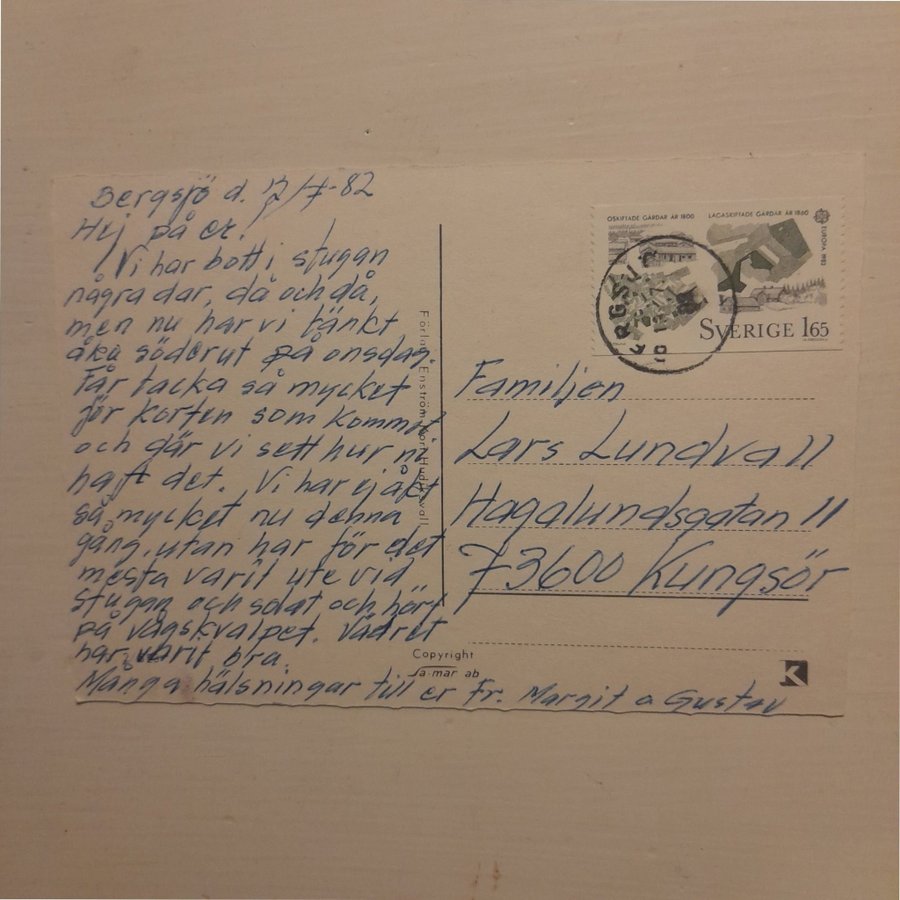 Bergsjö d. 12/7-82
Hej på er.
Vi har bott i stugan
några dar, då och då,
men nu har vi tänkt
åka söderut på onsdag.
Får tacka så mycket
för korten som kommit
och där vi sett hur ni
haft det. Vi har ej åkt
så mycket nu denna
gång, utan har för det
mesta varit ute vid
stugan och solat och hört
på vågskvalpet. Vädret
har varit bra.
Många hälsningar till er Fr. Margit o Gustav
Förlag Enström
Copyright
Ja-mar ab
OSKIFTADE GÅRDAR ÅR 1800
LAGASKIFTADE GÅRDAR ÅR 1860
EUROPA 1982
SVERIGE 165
BERGSJÖ
Familjen
Lars Lundvall
Hagalundsgatan 11
73600 Kungsör
K